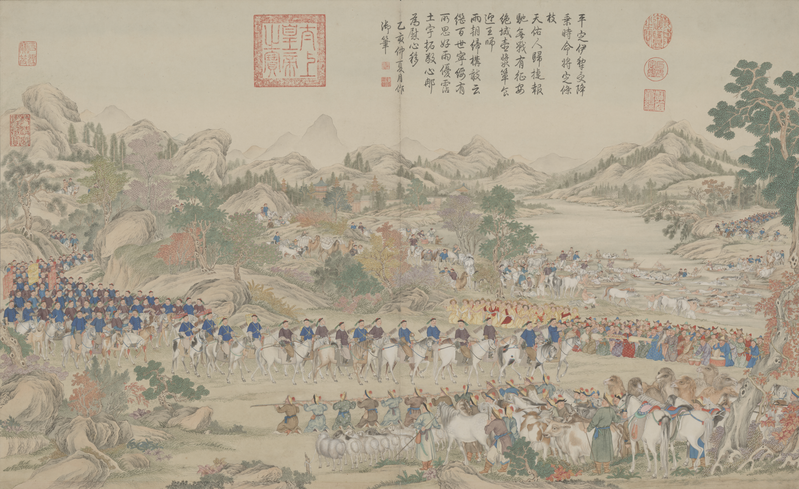 平定伊犁受降
乘時命將定條
枝
天佑人歸捷報
馳無戰有征安
絕域壺漿簞食
迎王師
兩朝締構敢云
繼百世寧綏有
所思好雨優霑
土宇拓敬心那
為慰心移
乙亥仲夏月作
御筆
太上皇帝之寶